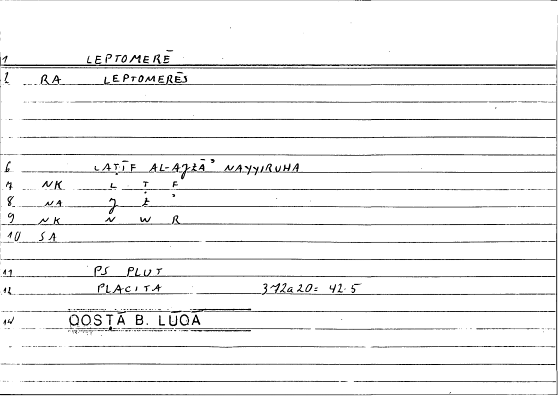 1 LEPTOMERĒ
2 RA LEPTOMERĒS
6 LAṬĪF AL-AǦZĀʾ NAYYIRUHA
7 NK L Ṭ F
8 NA ǧ z ʾ
9 NK N W R
10 SA
11 PS PLUT
12 PLACITA 312a20 = 42.5
14 QOSṬĀ B. LŪQĀ